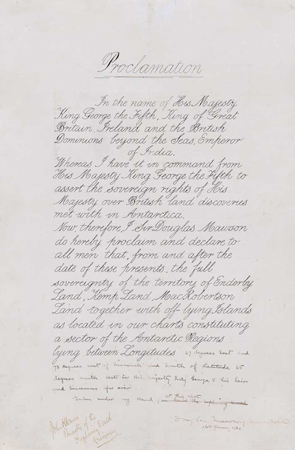 Proclamation
In the name of His Majesty
King George the Fifth, King of Great
Britain, Ireland and the British
Dominions beyond the Seas, Emperor
of India.
Whereas I have it in command from
His Majesty King George the Fifth to
assert the sovereign rights of His
Majesty over British land discoveries
met with in Antarctica.
Now, therefore, I Sir Douglas Mawson
do hereby proclaim and declare to
all men that, from and after the
date of these presents, the full
sovereignty of the territory of Enderby
Land, Kemp Land, Mac Robertson
Land together with off-lying Islands
as located in our charts constituting
a sector of the Antarctic Regions
lying between Longitudes
degrees east and
73 degrees east of Greenwich and South of Latitude 65
degrees South vest in His Majesty King George V his heirs
and successors for ever.
Given under my hand